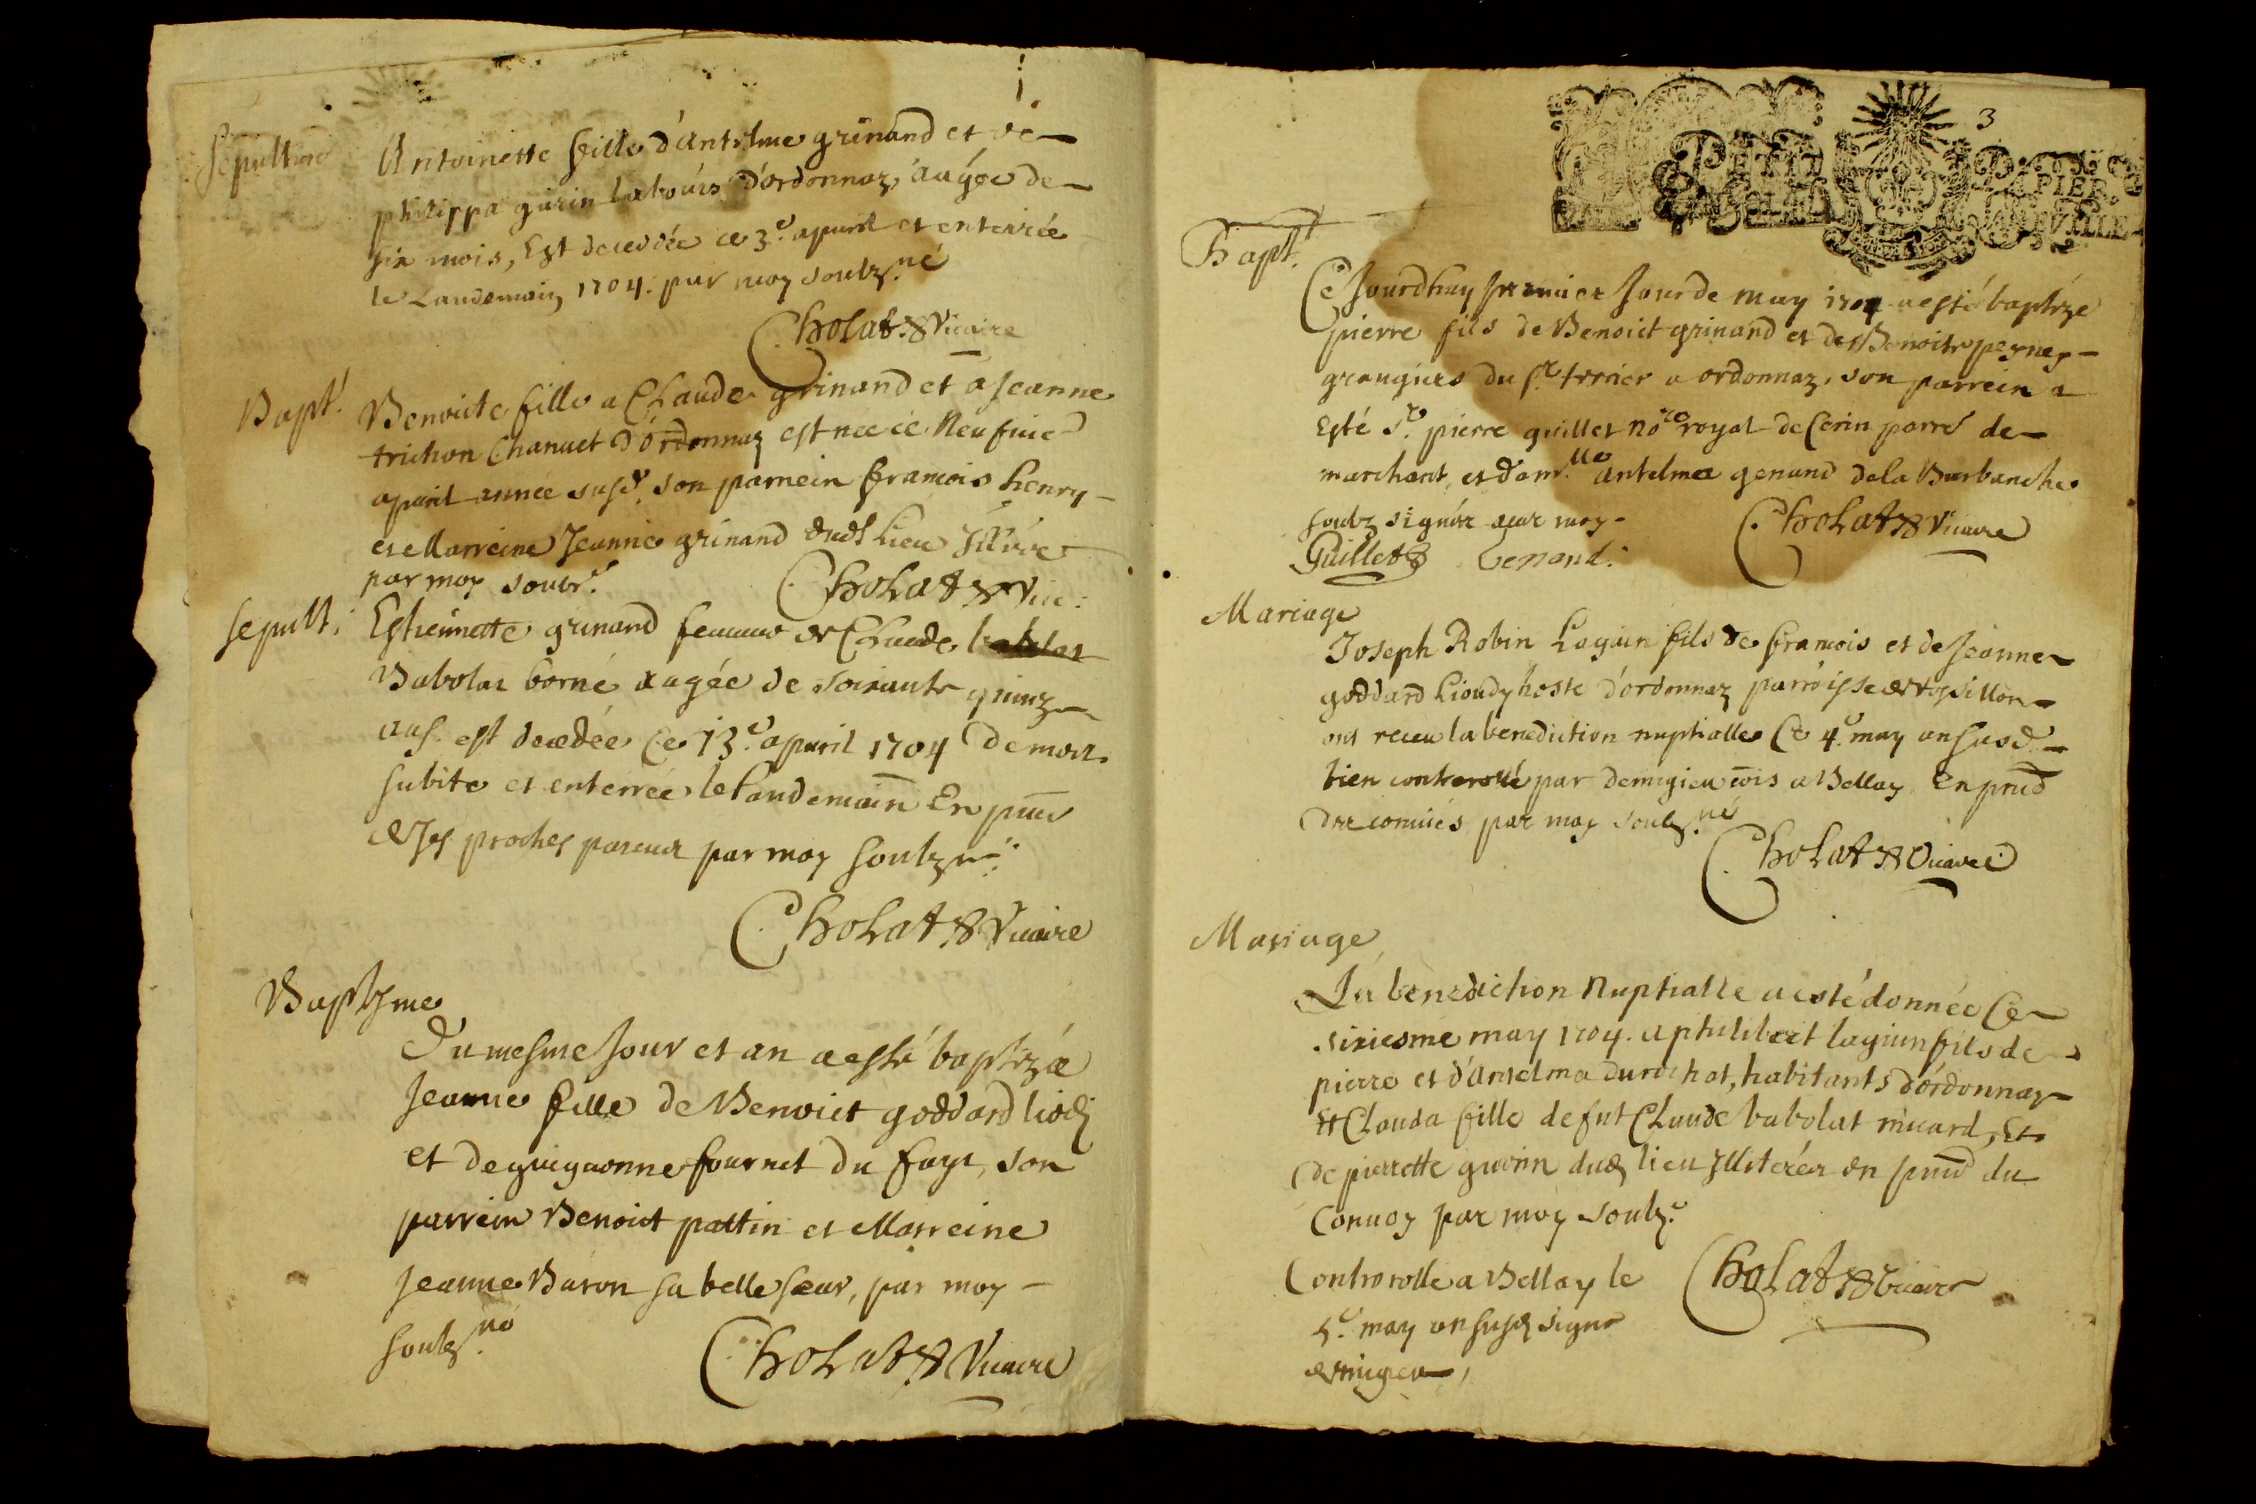 Sepulture
Antoinette fille d'Antelme grinand et de
philippa guérin labours d'ordonnaz, aagée de
six mois, Est decedée ce 3.e apuril et enterrée
le Landemain 1704. par moy soubz.né
Cholat Vicaire
Bapt.
Benoicte fille a Claude grinand et a Jeanne
trichon Chanuet d'ordonnaz est nee ce Neufiuie
apuril année susd. son parrein francois henry
et Marreine Jeanne grinand dudt Lieu
par moy soubz.
Cholat Vic:
sepult:
Estiennette grinand femme de Claude
Babolat borné aagée de soixante quinze
ans est decedée Ce 13.e apuril 1704 de mort
subite et enterrée le landemain En pnce
de ses proches parents par moy soubzné
Cholat Vicaire
Baptesme
Du mesme Jour et an a esté baptizée
Jeanne fille de Benoict goddard liodi
et de guigonne fournet du fays, son
parrein Benoict pattin et Marreine
Jeanne Baron sa belle soeur, par moy
soubz.né
Cholat Vicaire
3
PETIT
PAPIER
Bapt.
Ce Jourdhuy premier Jour de may 1704 a esté baptizé
pierre fils de Benoict grinand et de Benoite
grangiers du sr. a ordonnaz, son parrein a
Esté Sr. pierre guillet nore royal de Cerin parre de
marchant, et damlle antelma genand de la Burbanche
soubz signéz auec moy
Cholat Vicaire
Guillet Genand.
Mariage
Joseph Robin Lagiun fils de francois et de Jeanne
goddard Lioudy hoste d'ordonnaz parroisse de
ont receu la benediction nuptialle Ce 4.e may an susd.
bien controrollé par demigieu a Bellay En pnce
des conuiés par moy soubz.né
Cholat Vicaire
Mariage
La benediction Nuptialle a esté donnée Ce
sixiesme may 1704. a philibert lagiun fils de
pierre et d'Antelma durochat, habitants d'ordonnaz
Et Clauda fille de fut Claude babolat micard, Et
de pierrette guerin dud lieu Illiterés en pnce du
Conuoy par moy soubz.
Controrolle a Bellay le
Cholat Vicaire
5.e may an susd signe
demigieu